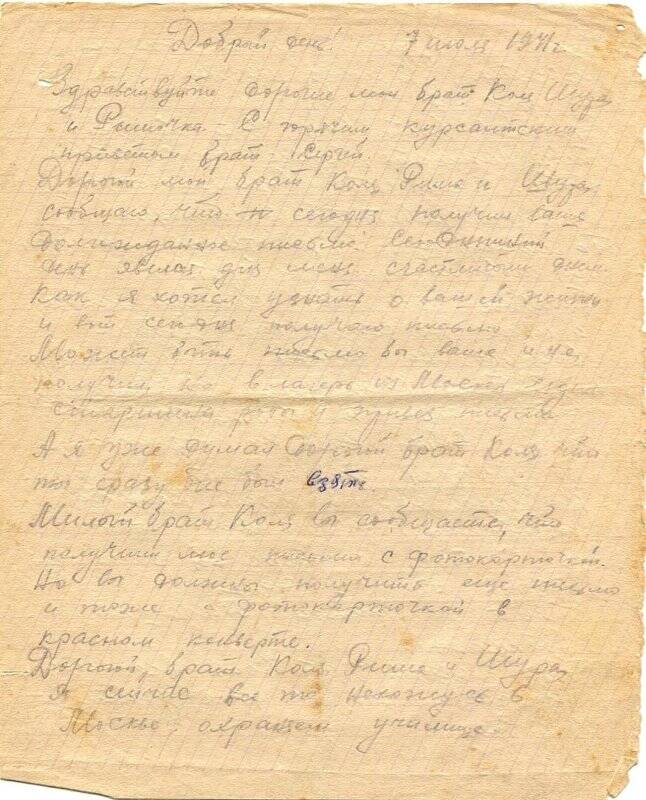 Добрый день! 7 июля 1941 г
Здравствуйте дорогие мои брат Коля Шура
и Риммочка. С горячим курсантским
приветом брат Сергей.
Дорогой мой брат Коля Римма и Шура,
сообщаю, что сегодня получил ваше
долгожданное письмо. Сегодняшний
день явился для меня счастливым днем.
Как я хотел узнать о вашей жизни
и вот сегодня получаю письмо
Может быть письмо бы ваше и не
получил, но в лагерь из Москвы
старшина роты и привез письма
А я уже думал дорогой брат Коля что
ты сразу же был взят.
Милый брат Коля вы сообщаете, что
получили мое письмо с фотокарточкой.
Но вы должны получить еще письмо
и тоже с фотокарточкой в
красном конверте.
Дорогой, брат Коля Римма и Шура,
я сейчас нахожусь в
Москве, охраняем училище.